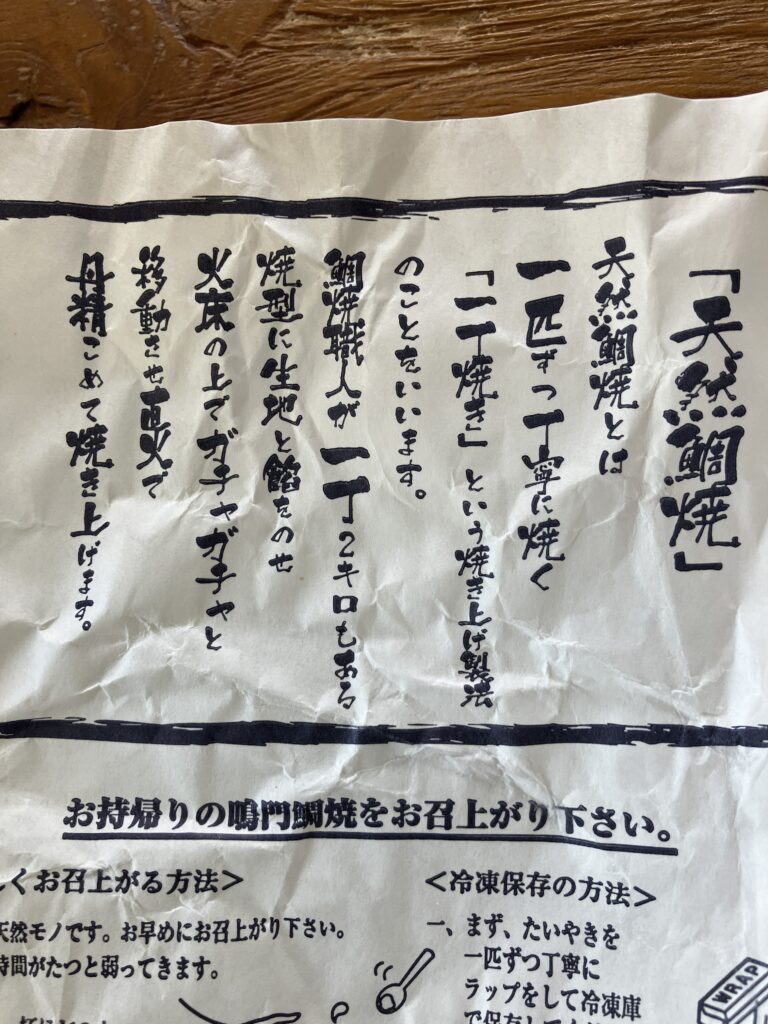 「天然鯛焼」
天然鯛焼とは
一匹ずつ丁寧に焼く
「一丁焼き」という焼き上げ製法
のことをいいます。
鯛焼職人が一丁2キロもある
焼型に生地と餡をのせ
火床の上でガチャガチャと
移動させ直火で
丹精こめて焼き上げます。
お持帰りの鳴門鯛焼をお召上がり下さい。
くお召上がる方法＞
天然モノです。お早めにお召上がり下さい。
時間がたつと弱ってきます。
＜冷凍保存の方法＞
一、まず、たいやきを
一匹ずつ丁寧に
ラップをして冷凍庫
で保存して
WRAP